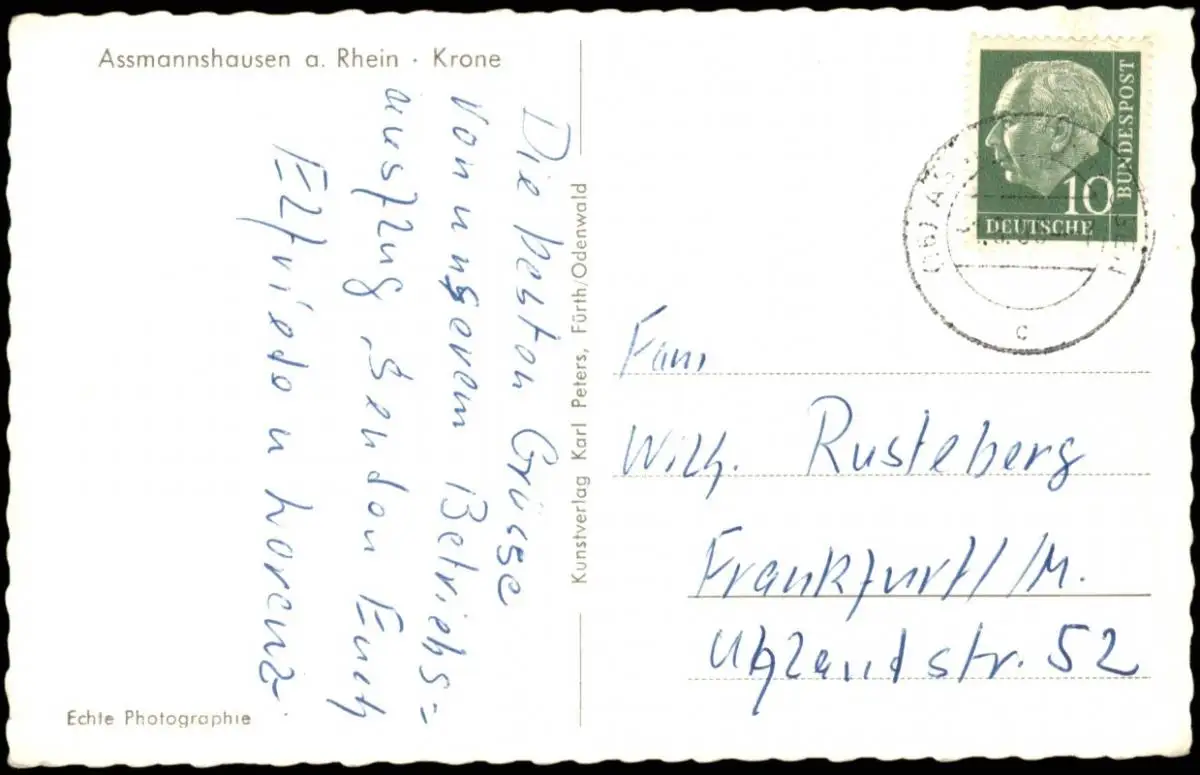 Assmannshausen a. Rhein · Krone
Die besten Grüsse
von unserem Betriebs=
ausflug senden Euch
Elfriede u Lorenz.
Echte Photographie
Kunstverlag Karl Peters, Fürth/Odenwald
BUNDESPOST
10
DEUTSCHE
c
Fam.
Wilh. Rusteberg
Frankfurt/M.
Uhlandstr. 52